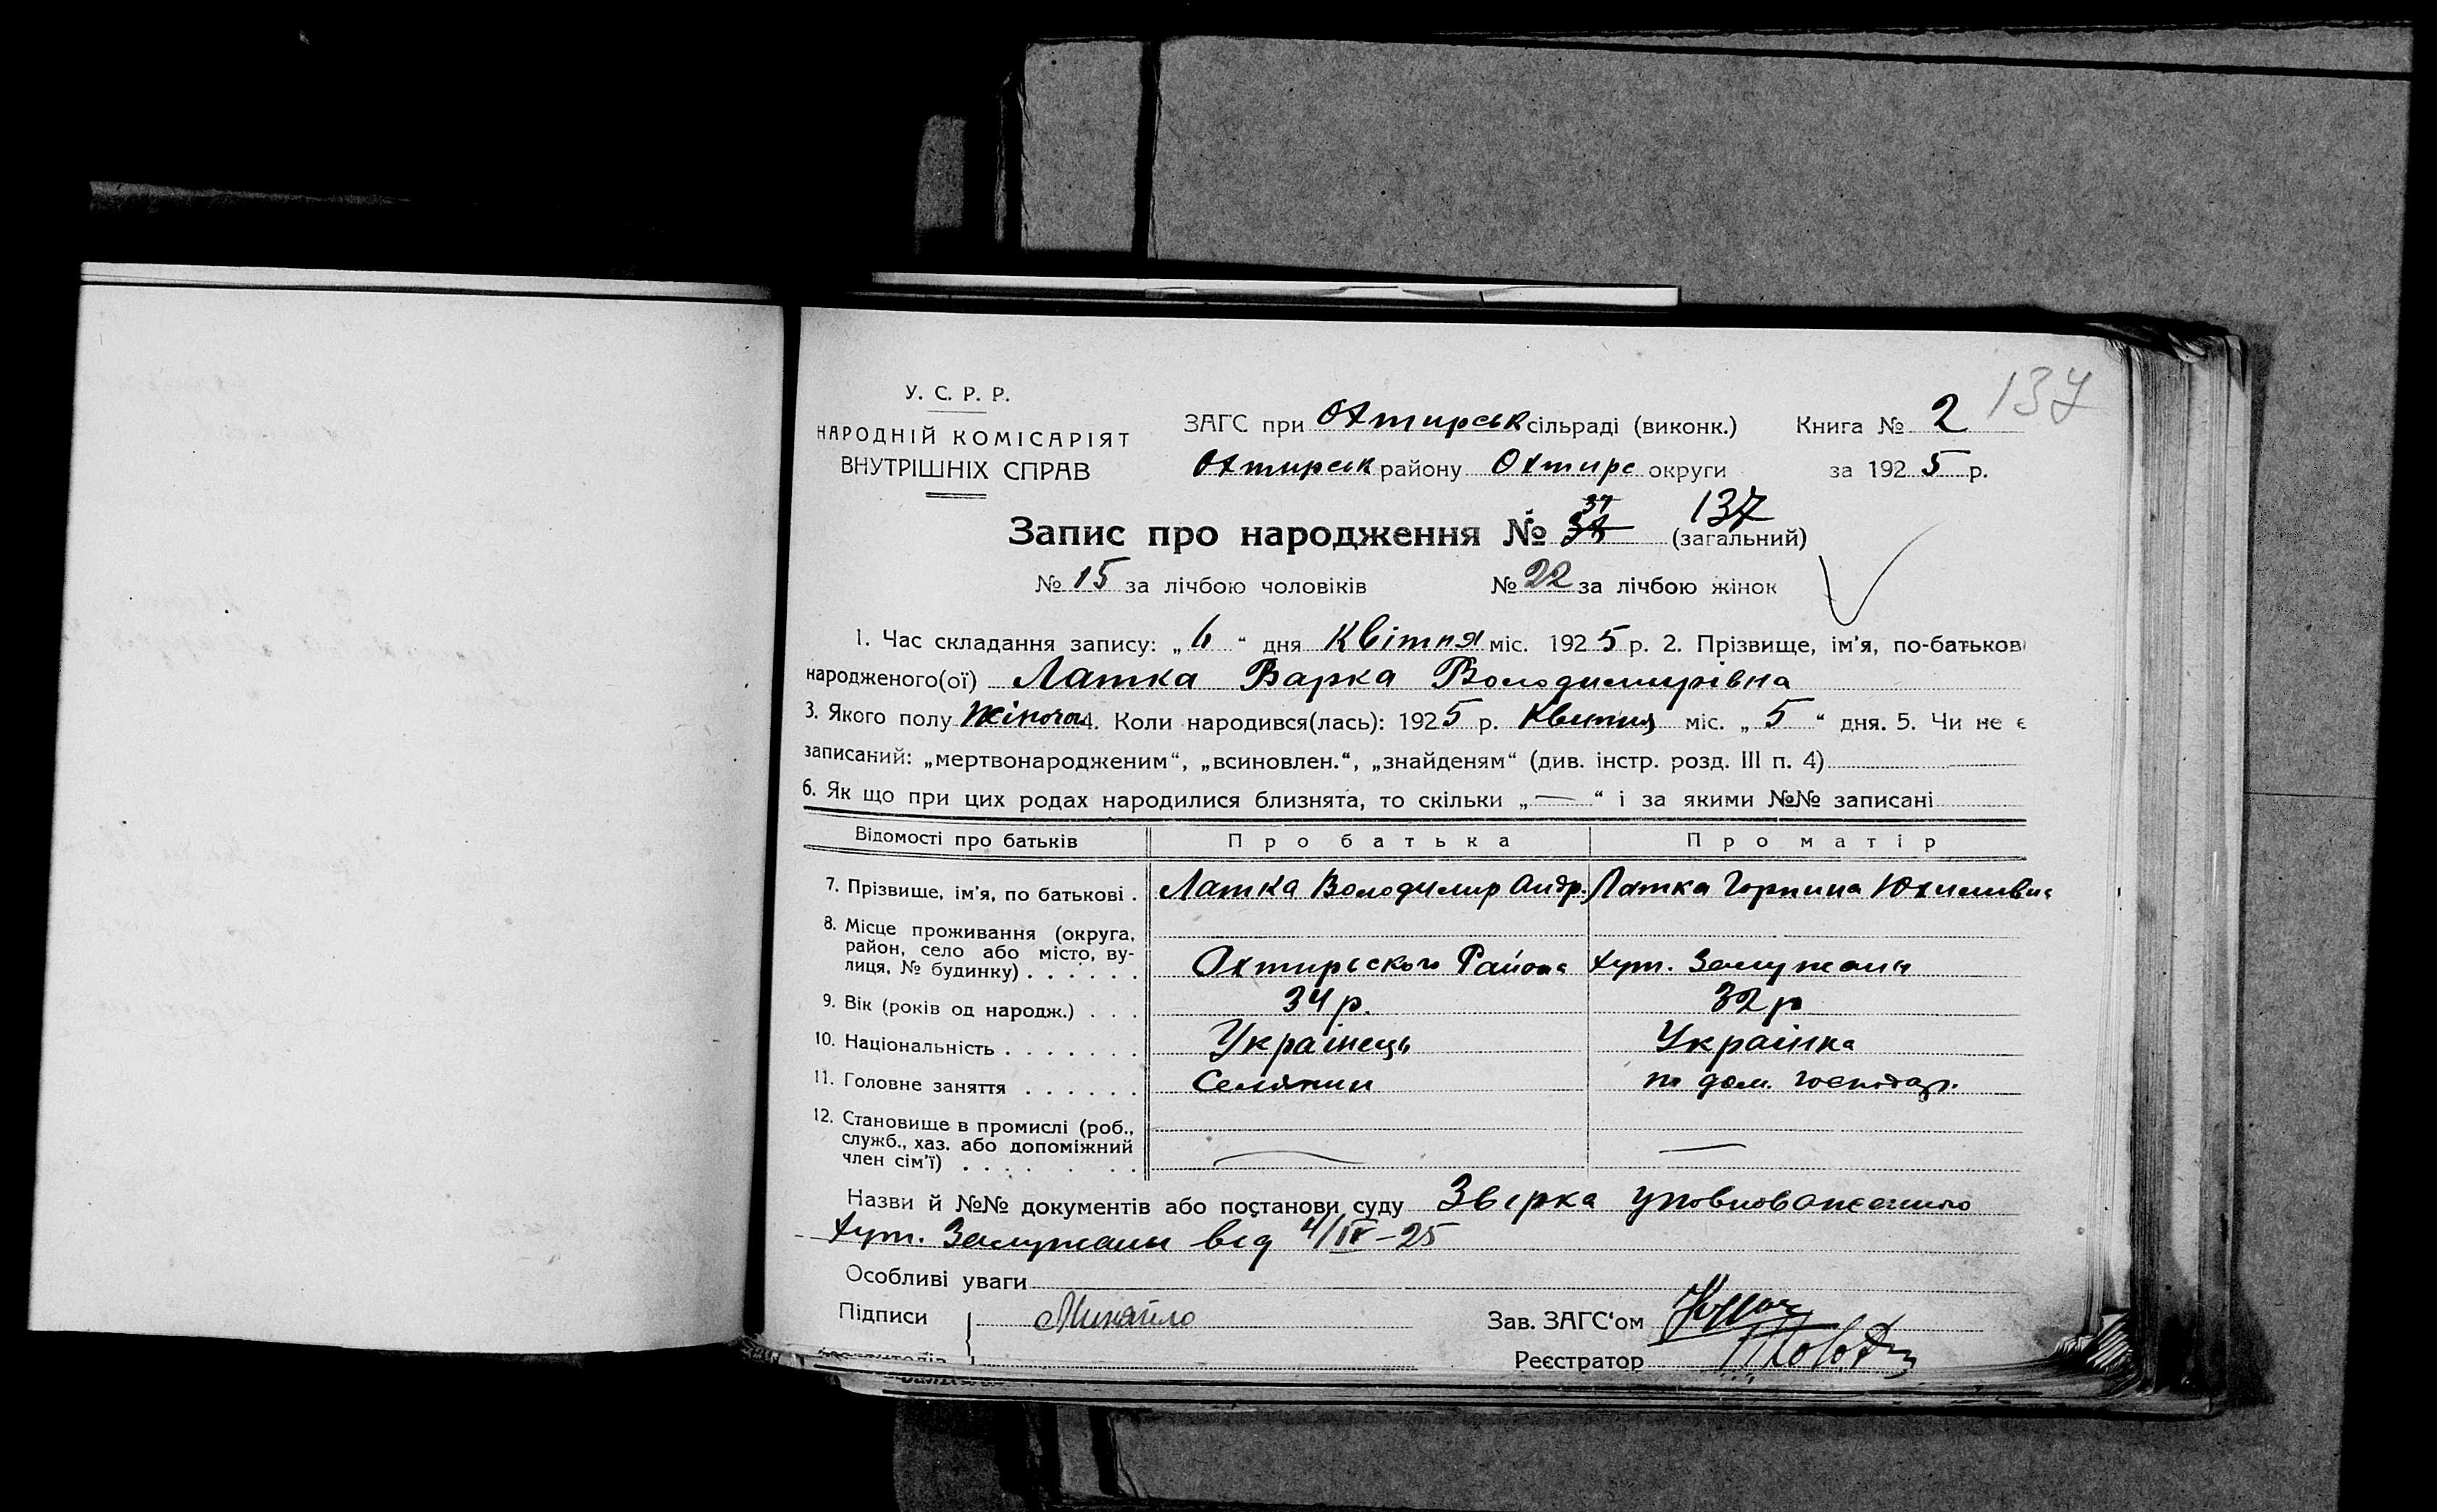 137
У. С. Р. Р.
НАРОДНІЙ КОМІСАРІЯТ
ВНУТРІШНІХ СПРАВ
ЗАГС при Охтирськ сільраді (виконк.) Книга № 2
Охтирськ району Охтирс округи за 1925 р.
Запис про народження № 37 137 (загальний)
№ 15 за лічбою чоловіків № 22 за лічбою жінок
1. Час складання запису: „6“ дня Квітня міс. 1925 р. 2. Прізвище, ім'я, по-батькові
народженого(ої) Латка Варка Володимирівна
3. Якого полу жіночої 4. Коли народився(лась): 1925 р. Квитня міс. „5“ дня. 5. Чи не є
записаний: „мертвонародженим“, „всиновлен.“, „знайденям“ (див. інстр. розд. III п. 4)
6. Як що при цих родах народилися близнята, то скільки „—“ і за якими №№ записані
Відомості про батьків Про батька Про матір
7. Прізвище, ім'я, по батькові . Латка Володимир Андр. Латка Горпина Юхимовна
8. Місце проживання (округа,
район, село або місто, ву-
лиця, № будинку) . . . . . . Охтирського Района хут. Залужани
9. Вік (років од народж.) . . . 34 р. 32 р
10. Національність . . . . . . . Українець Українка
11. Головне заняття . . . . . . Селянин по дом. господар.
12. Становище в промислі (роб.,
служб., хаз. або допоміжний
член сім'ї) . . . . . . — —
Назви й №№ документів або постанови суду Звірка уповноваженного
хут. Залужаны від 4/IV-25
Особливі уваги
Підписи Михайло Зав. ЗАГС'ом
Реєстратор